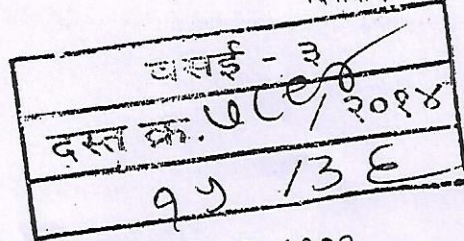 वसई - ३
दस्त क्र. / २०१४
१५ / ३६